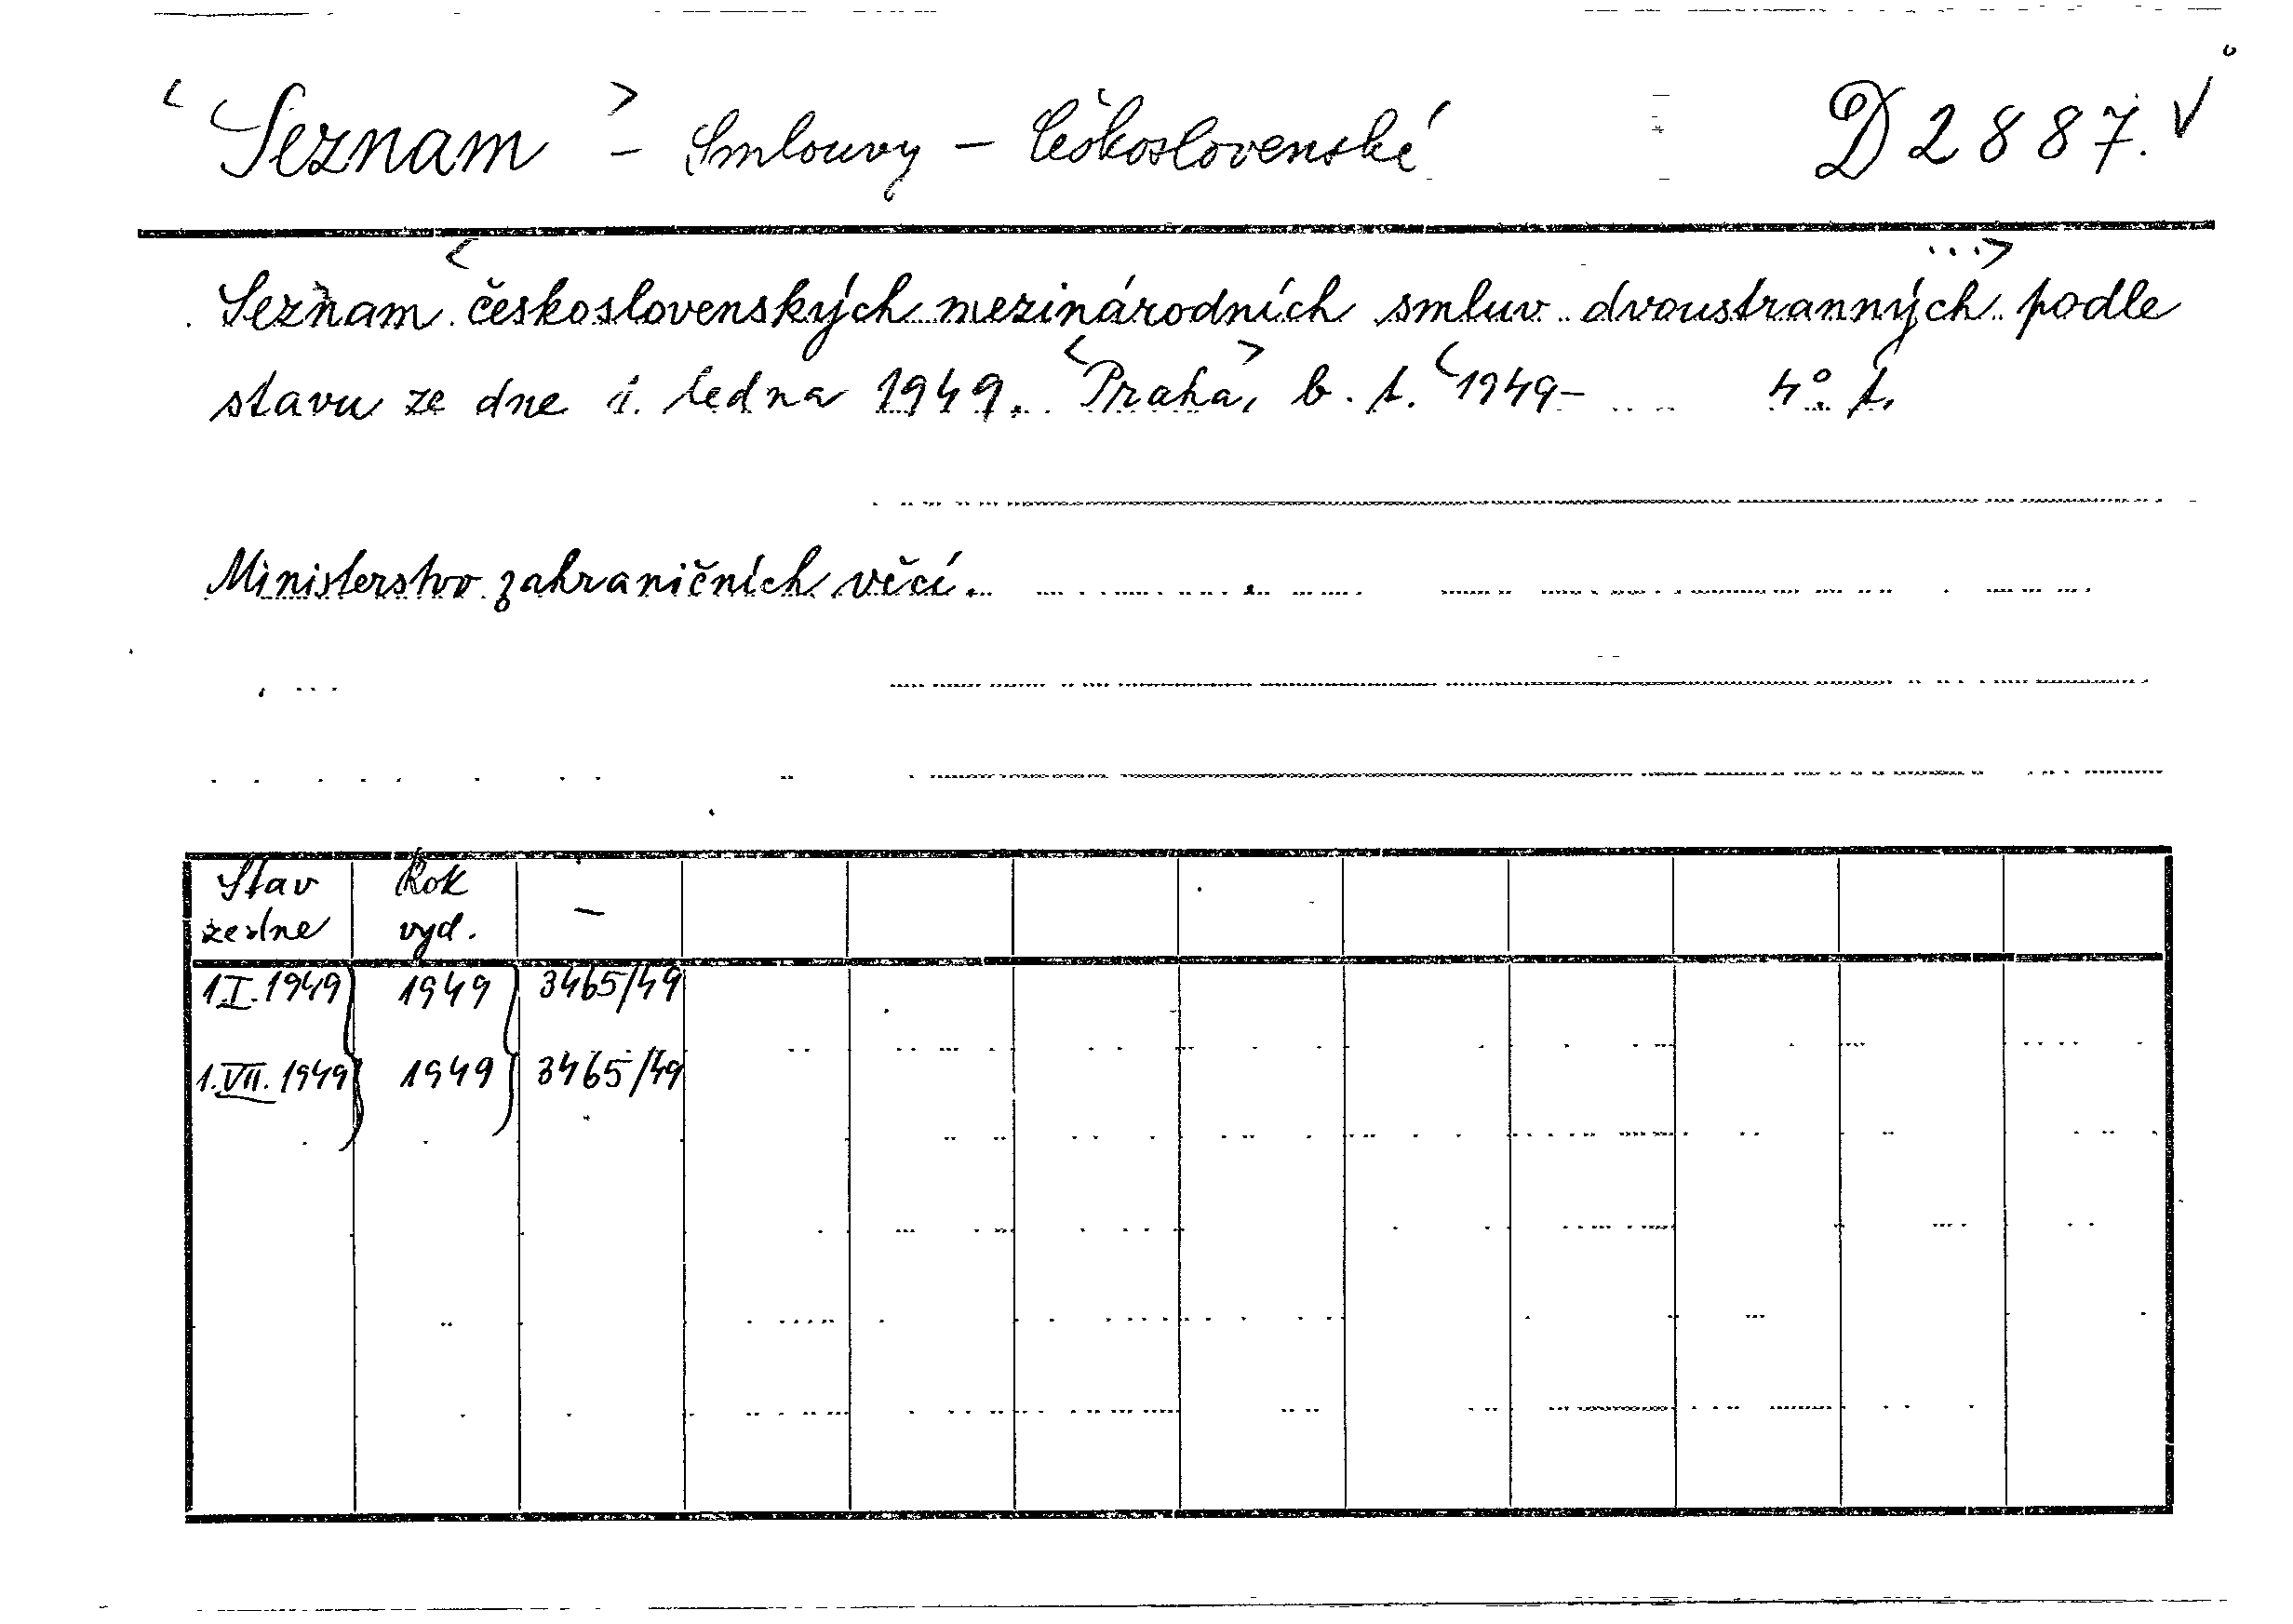 <Seznam> - Smlouvy - Československé D 2887. V
Seznam <československých mezinárodních smluv dvoustranných ...> podle
stavu ze dne 1. ledna 1949. <Praha>, b. t. <1949- 4° t.
Ministerstvo zahraničních věcí.
Stav ze dne Rok vyd. -
1.I.1949 1949 3465/49
1.VII.1949 1949 3465/49